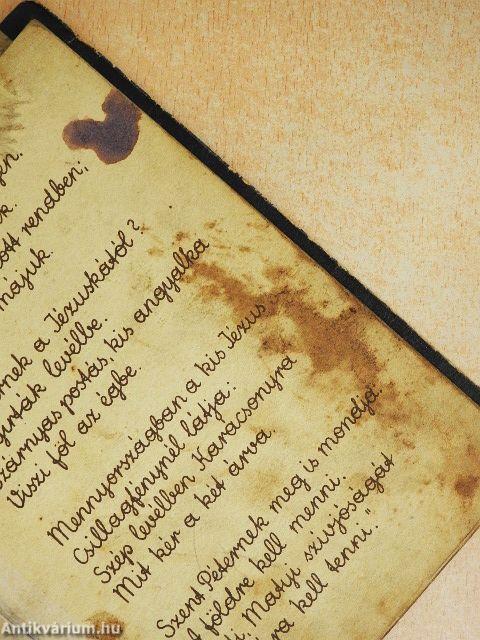 rendben;
rnek a Jézuskától?
levélbe.
postás, kis angyalka
Viszi föl az égbe.
Mennyországban a kis Jézus
Csillagfénynél látja:
Szép levélben Karácsonyra
Mit kér a két árva.
Szent Péternek meg is mondja:
földre kell menni.
Matyi szívjóságát
ra kell tenni."
Antikvárium.hu